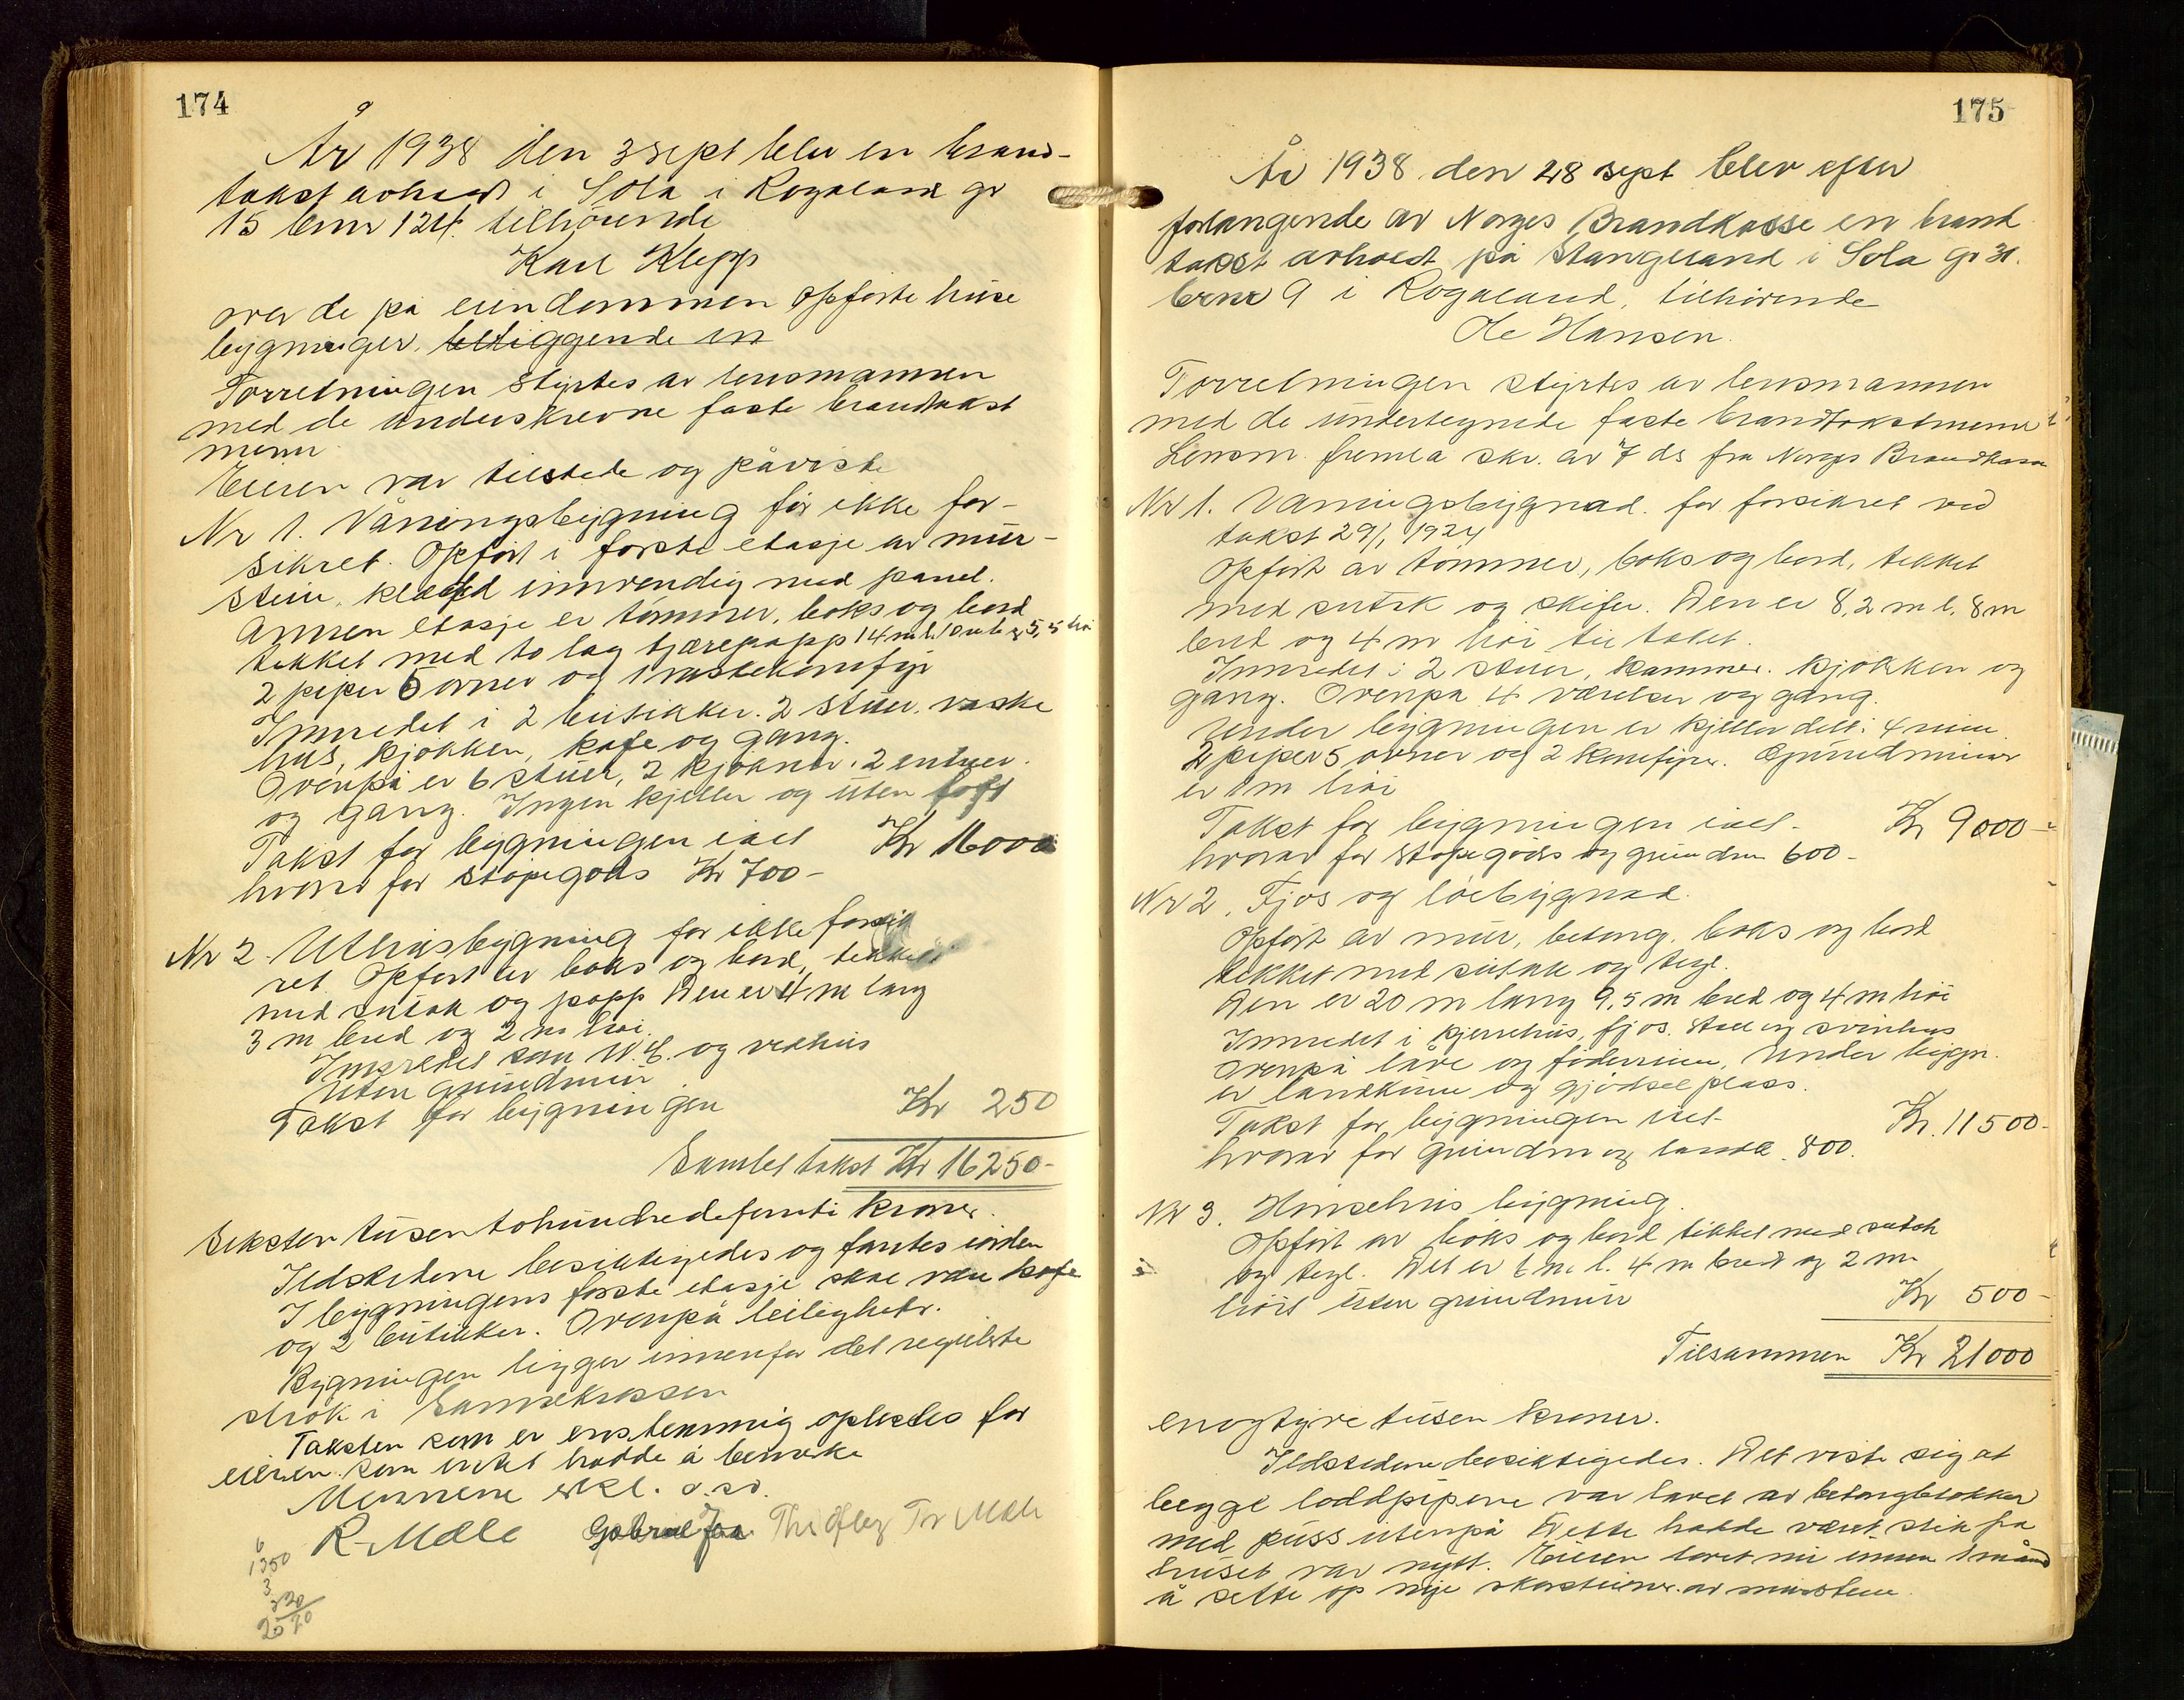 174
År 1938 den 3 sept blev en brand-
takst avholdt i Sola i Rogaland gr
15 bnr 124. tilhörende
Karl Klepp
over de på eiendommen opførte huse
bygninger, beliggende en
Forretningen styrtes av lensmannen
med de underskrevne faste brandtakst
menn
Eieren var tilstede og påviste
Nr 1. Våningsbygning för ikke for-
sikret. Opfört i første etasje av mur-
stein, klædd innvendig med panel.
Annen etasje er tömmer, boks og bord
tekket med to lag tjærepapp 14 m l. 10 m b. og 5,5 höi
2 piper 6 ovner og 1 vaskekomfyr
Innredet i 2 butikker. 2 stuer, vaske
hus, kjökken, kafe og gang.
Ovenpå er 6 stuer, 2 kjökner, 2 entreer.
og gang. Ingen kjeller og uten loft
Takst for bygningen ialt Kr 16000
hvorav for stöpegods Kr 700-
Nr 2. Uthusbygning for ikke forsik
ret. Opfört av boks og bord, tekket
med sutak og papp Den er 4 m lang
3 m bred og 2 m höi.
Innredet som W.C. og vedhus
Uten grundmur
Takst for bygningen Kr 250
Samlet takst Kr 16250-
Seksten tusen tohundredefemti kroner.
Ildstedene besiktigedes og fantes iorden
I bygningens første etasje skal være kafe
og 2 butikker. Ovenpå leiligheter.
Bygningen ligger innenfor det regulerte
strök i Sannekrossen
Taksten som er enstemmig oplestes for
eieren som intet hadde å bemerke
Mennene erkl. o.s.v.
R. Molle Gabriel Joa
6
1350
3
320
2020
175
År 1938 den 28 sept blev efter
forlangende av Norges Brandkasse en brand
takst avholdt på Stangeland i Sola gr 31.
bnr 9 i Rogaland, tilhörende
Ole Hansen.
Forretningen styrtes av lensmannen
med de undertegnede faste brandtakstmenn
Lensm. fremla skr. av 7 ds fra Norges Brandkasse
Nr 1. Våningsbygnad. for forsikret ved
takst 29/1 1924
Opfört av tömmer, boks og bord, tekket
med sutak og skifer. Den er 8,2 m l. 8 m
bred og 4 m höi til taket.
Innredet i 2 stuer, kammer. kjökken og
gang. Ovenpå 4 værelser og gang.
Under bygningen er kjeller delt i 4 rum
2 piper 5 ovner og 2 komfyrer. Grundmuren
er 1 m höi
Takst for bygningen ialt- Kr 9000-
hvorav for stöpegods og grundm 600-
Nr 2. Fjos og löebygnad.
Opfört av mur, betong. boks og bord
tekket med sutak og tegl.
Den er 20 m lang 9,5 m bred og 4 m höi
Innredet i kjerrehus, fjos. stall og svinhus
ovenpå låve og foderrum. Under bygn.
er landkum og gjödselplass.
Takst for bygningen ialt- Kr. 11500-
hvorav for grundm og landk. 800.
Nr 3. Hönsehus bygning
Opfört av boks og bord tekket med sutak
og tegl. Det er 6 m l. 4 m bred og 2 m
höit uten grundmur Kr 500-
Tilsammen Kr 21000
enogtyve tusen kroner.
Ildstedene besiktigedes. Det viste sig at
begge loddpipene var lavet av betongblokker
med puss utenpå Dette hadde været slik fra
huset var nytt. Eieren lovet nu innen 1 måned
å sette op nye skorsteiner av murstein